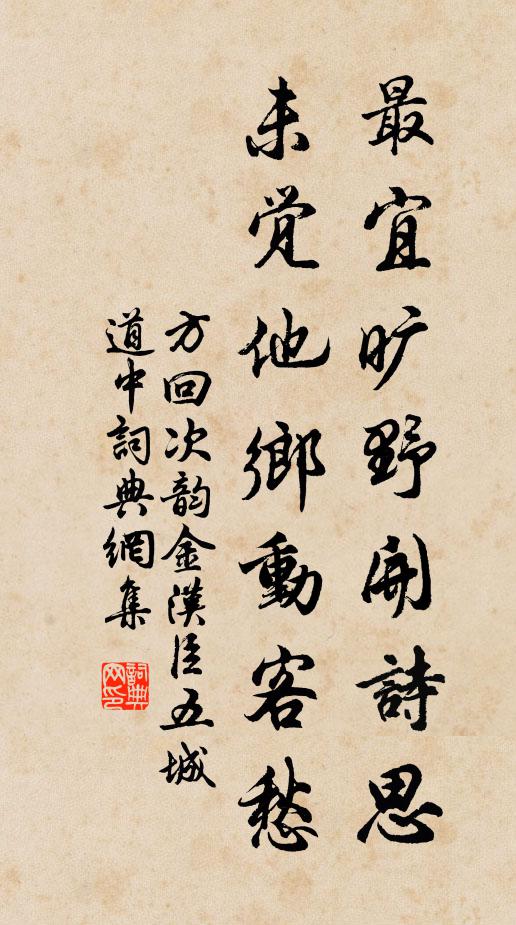 最宜旷野開詩思
未觉他鄉動客愁
方回次韵金漢臣五城
道中詞典網集
詞典网印